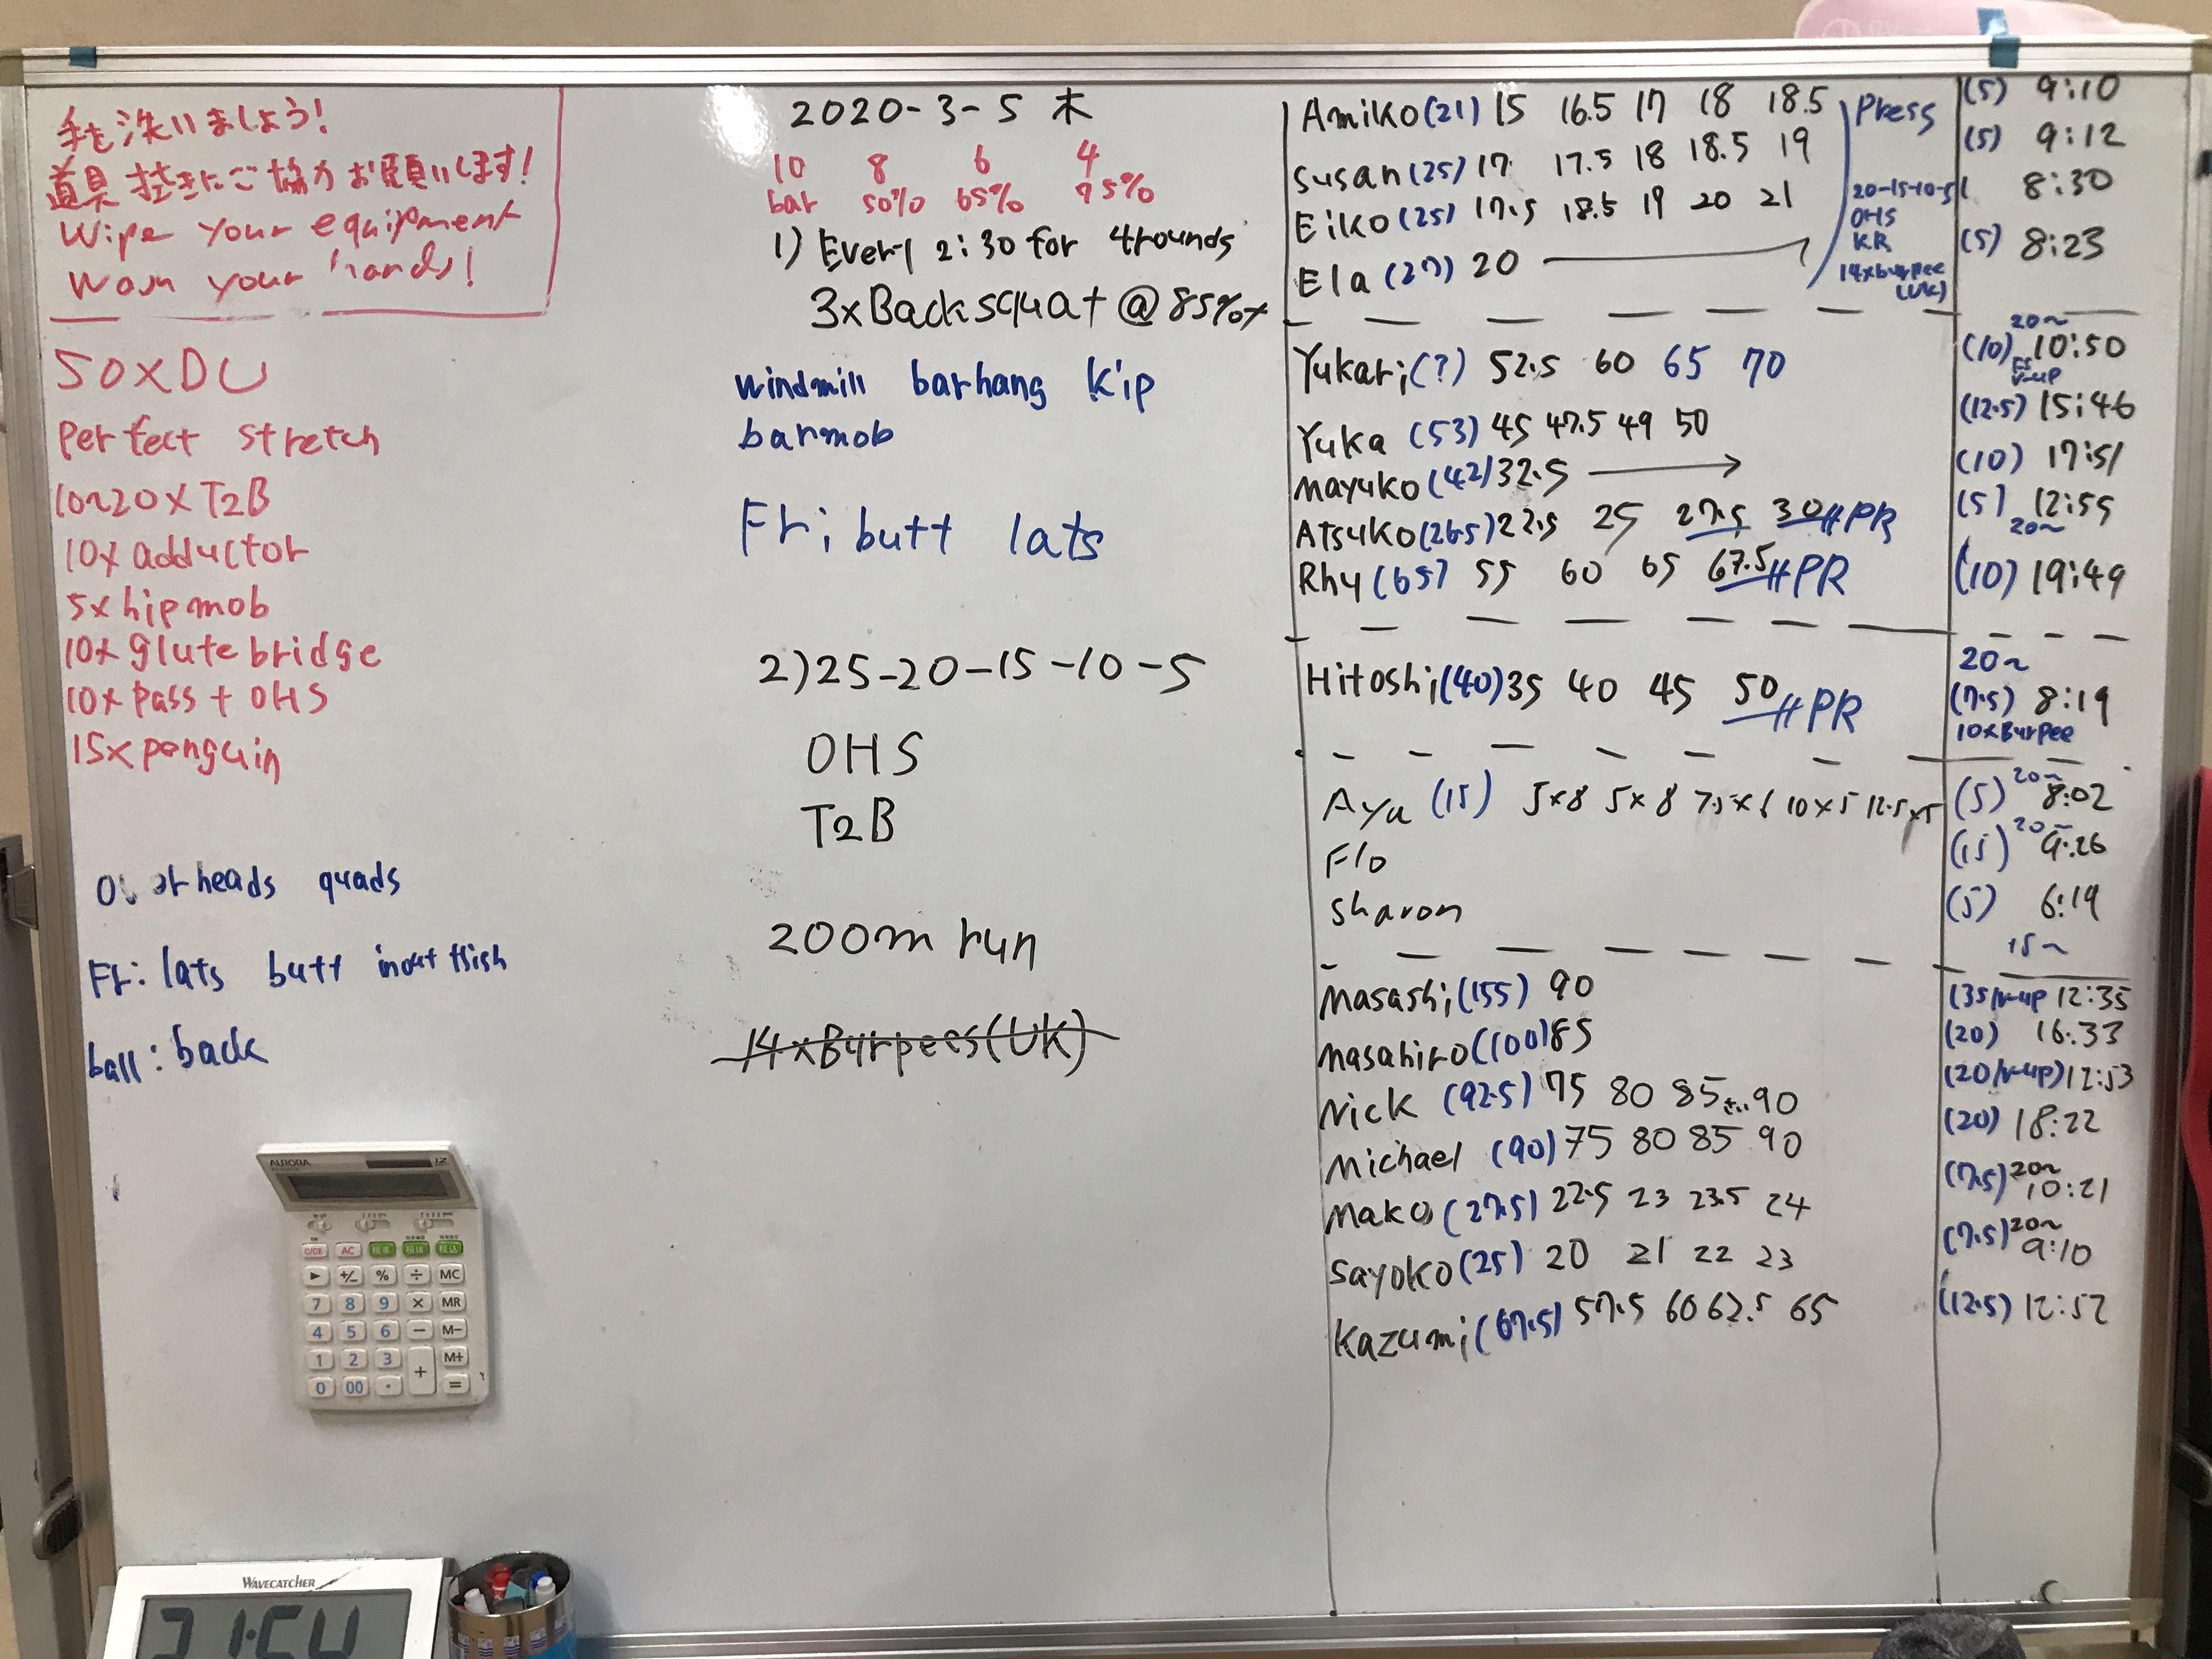 手を洗いましょう!
道具拭きにご協力お願いします!
Wipe your equipment
Wash your hands!
50xDU
perfect stretch
10~20xT2B
10x adductor
5x hip mob
10x glute bridge
10x Pass + OHS
15x penguin
heads quads
Fr: lats butt inout thigh
ball: back
2020-3-5 木
10 8 6 4
bar 50% 65% 75%
1) Every 2:30 for 4rounds
3xBack squat @85%+
windmill barhang Kip
barmob
Fr; butt lats
2) 25-20-15-10-5
OHS
T2B
200m run
14xBurpees(UK)
Amiko(21) 15 16.5 17 18 18.5
Susan(25) 17 17.5 18 18.5 19
Eiko(25) 17.5 18.5 19 20 21
Ela (27) 20
Press
20-15-10-5
OHS
KR
14xburpee
(UK)
(5) 9:10
(5) 9:12
8:30
(5) 8:23
Yukari(?) 52.5 60 65 70
Yuka (53) 45 47.5 49 50
Mayuko (42) 32.5 →
Atsuko(26.5) 22.5 25 27.5 30 PR
Rhy (65) 55 60 65 67.5 PR
20~
(10) 10:50
FS
V-up
(12.5) 15:46
(10) 17:51
(5) 12:55
20~
(10) 19:49
Hitoshi(40) 35 40 45 50 PR
20~
(7.5) 8:19
10xBurpee
Aya (15) 5x8 5x8 7.5x6 10x5 12.5x5
Flo
Sharon
(5) 20~ 8:02
(15) 20~ 9:26
(5) 6:19
15~
Masashi(155) 90
Masahiro(100) 85
Nick (92.5) 75 80 85 90
Michael (90) 75 80 85 90
Mako (27.5) 22.5 23 23.5 24
Sayoko (25) 20 21 22 23
Kazumi (67.5) 57.5 60 62.5 65
(35/v-up 12:35
(20) 16:33
(20/v-up) 12:53
(20) 18:22
(7.5) 20~ 10:21
(7.5) 20~ 9:10
(12.5) 12:52
AURORA 12
C/CE AC 税率 税抜 税込
► +/− % ÷ MC
7 8 9 × MR
4 5 6 − M−
1 2 3 + M+
0 00 · =
WAVECATCHER